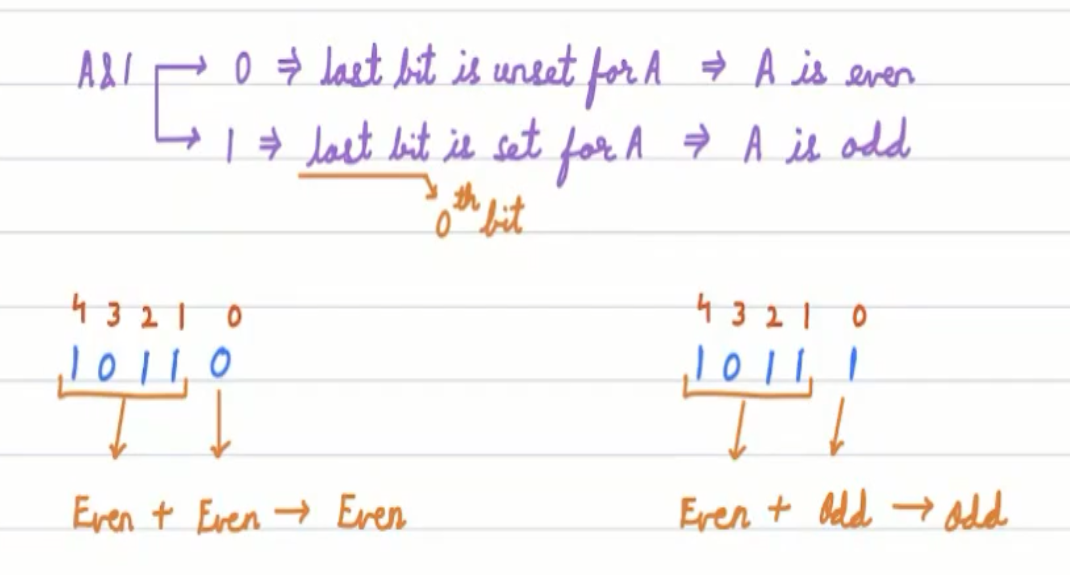 A&1 → 0 ⇒ last bit is unset for A ⇒ A is even
→ 1 ⇒ last bit is set for A ⇒ A is odd
0th bit
4 3 2 1 0
1 0 1 1 0
Even + Even → Even
4 3 2 1 0
1 0 1 1 1
Even + Odd → Odd